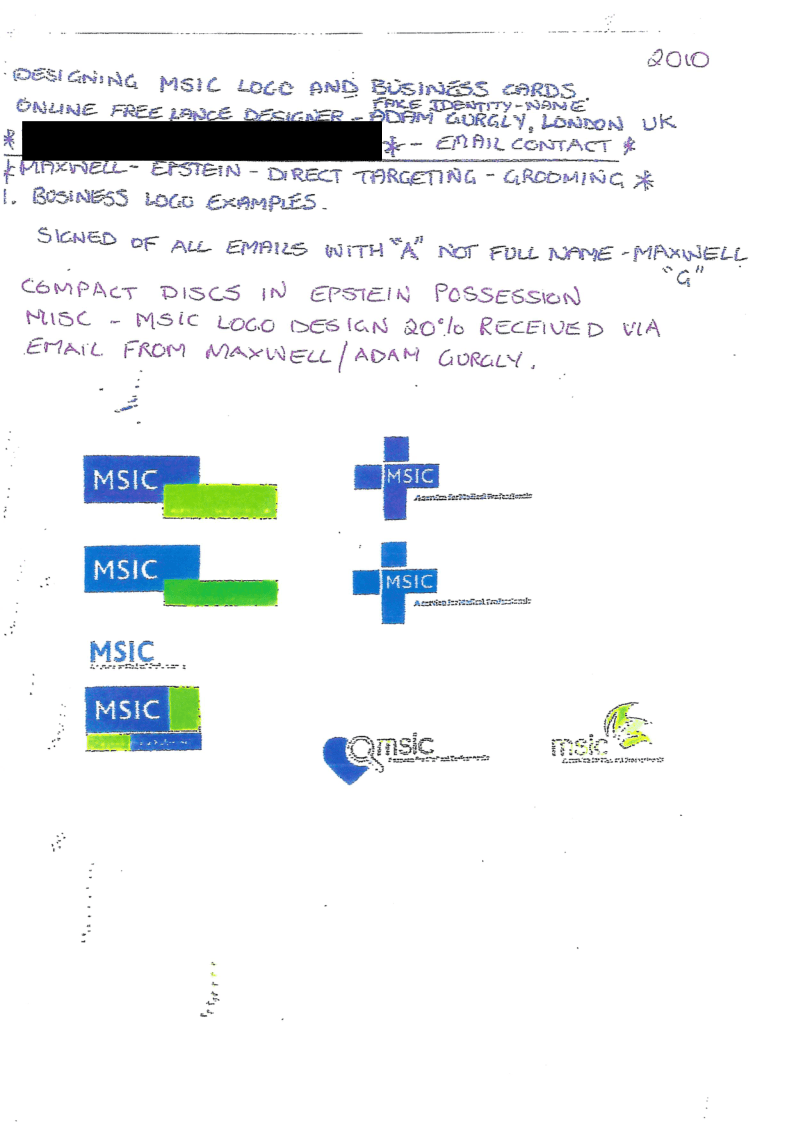 2010
DESIGNING MSIC LOGO AND BUSINESS CARDS.
FAKE IDENTITY-NAME
ONLINE FREE LANCE DESIGNER - ADAM GURGLY, LONDON UK
* * - EMAIL CONTACT *
* MAXWELL - EPSTEIN - DIRECT TARGETING - GROOMING *
1. BUSINESS LOGO EXAMPLES.
SIGNED OF ALL EMAILS WITH "A" NOT FULL NAME - MAXWELL
"G"
COMPACT DISCS IN EPSTEIN POSSESSION
MISC - MSIC LOGO DESIGN 20% RECEIVED VIA
EMAIL FROM MAXWELL/ADAM GURGLY.
MSIC
MSIC
A service for Medical Professionals
MSIC
MSIC
A service for Medical Professionals
MSIC
MSIC
msic
msic